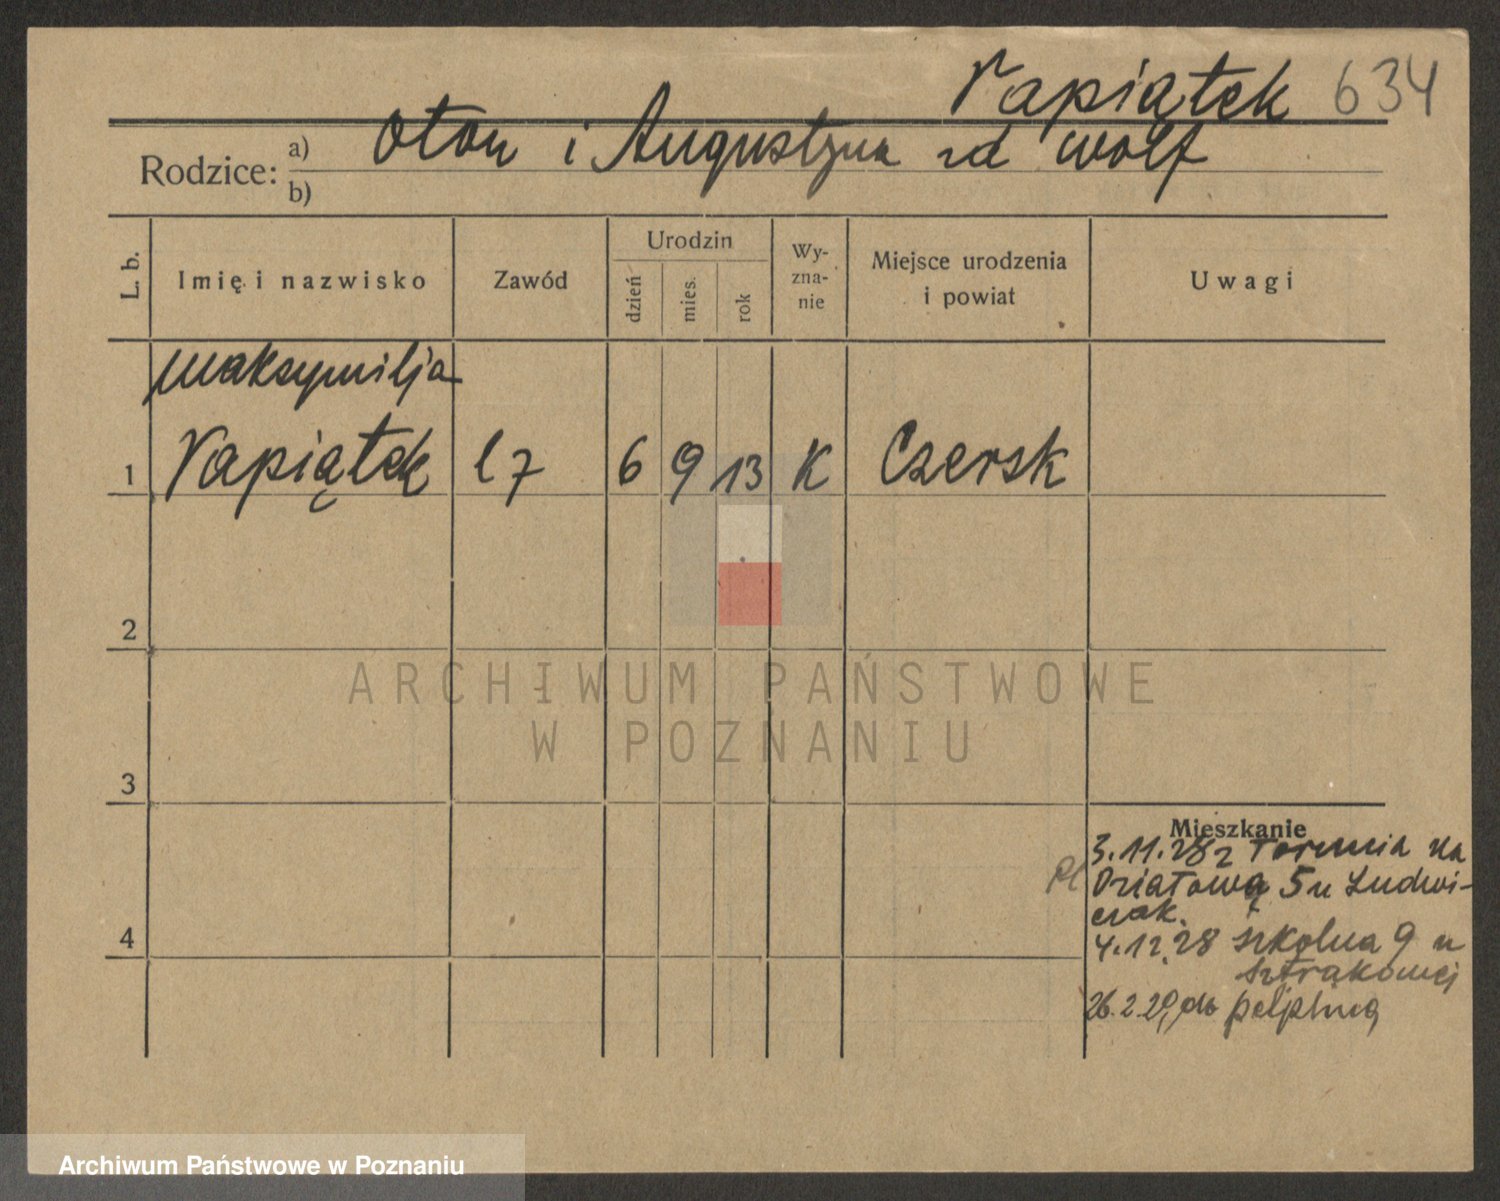 Papiątek 634
Rodzice: a) Oton i Augustyna zd Wolf
b)
L. b.
Imię i nazwisko
Zawód
Urodzin
dzień
mies.
rok
Wy-
zna-
nie
Miejsce urodzenia
i powiat
Uwagi
Maksymilja
1 Papiątek 6 9 13 K Czersk
2
3
4
Mieszkanie
3.11.28 z Torunia na
Działową 5 u Ludwi-
czak.
4.12.28 Szkolna 9 u
26.2.29 do Pelplina
ARCHIWUM PAŃSTWOWE
W POZNANIU
Archiwum Państwowe w Poznaniu